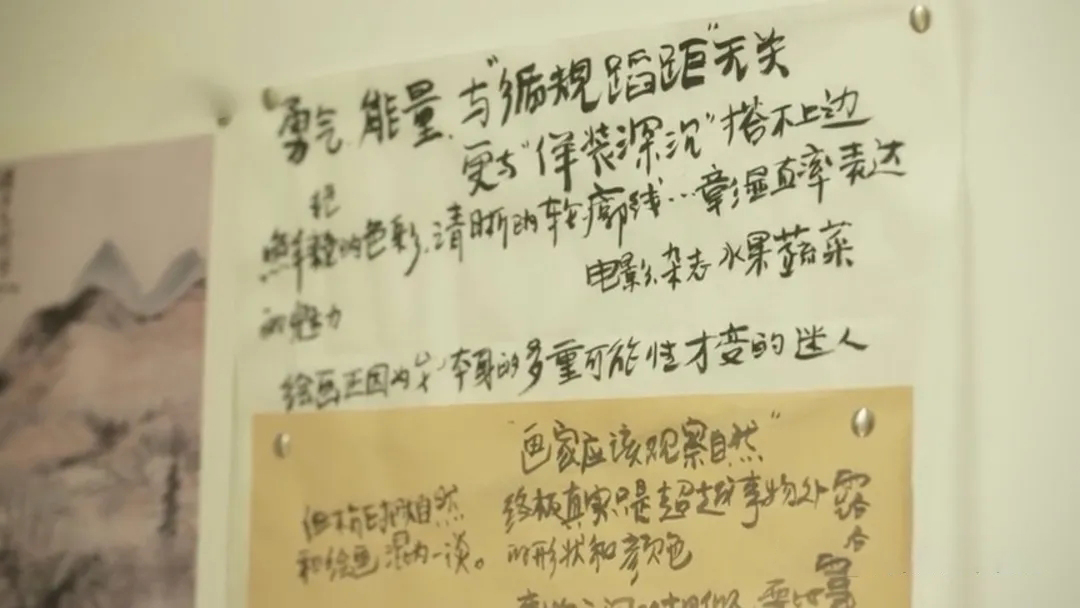 勇气、能量、与“循规蹈距”无关
更与“佯装深沉”搭不上边
把
鲜艳的色彩、清晰的轮廓线…章显直率表达
电影、杂志 水果蔬菜
的魅力
绘画正因为 本身的多重可能性才变的迷人
“画家应该观察自然”
但 把自然
和绘画混为一谈。
终极真实只是超越事物外
的形状和颜色